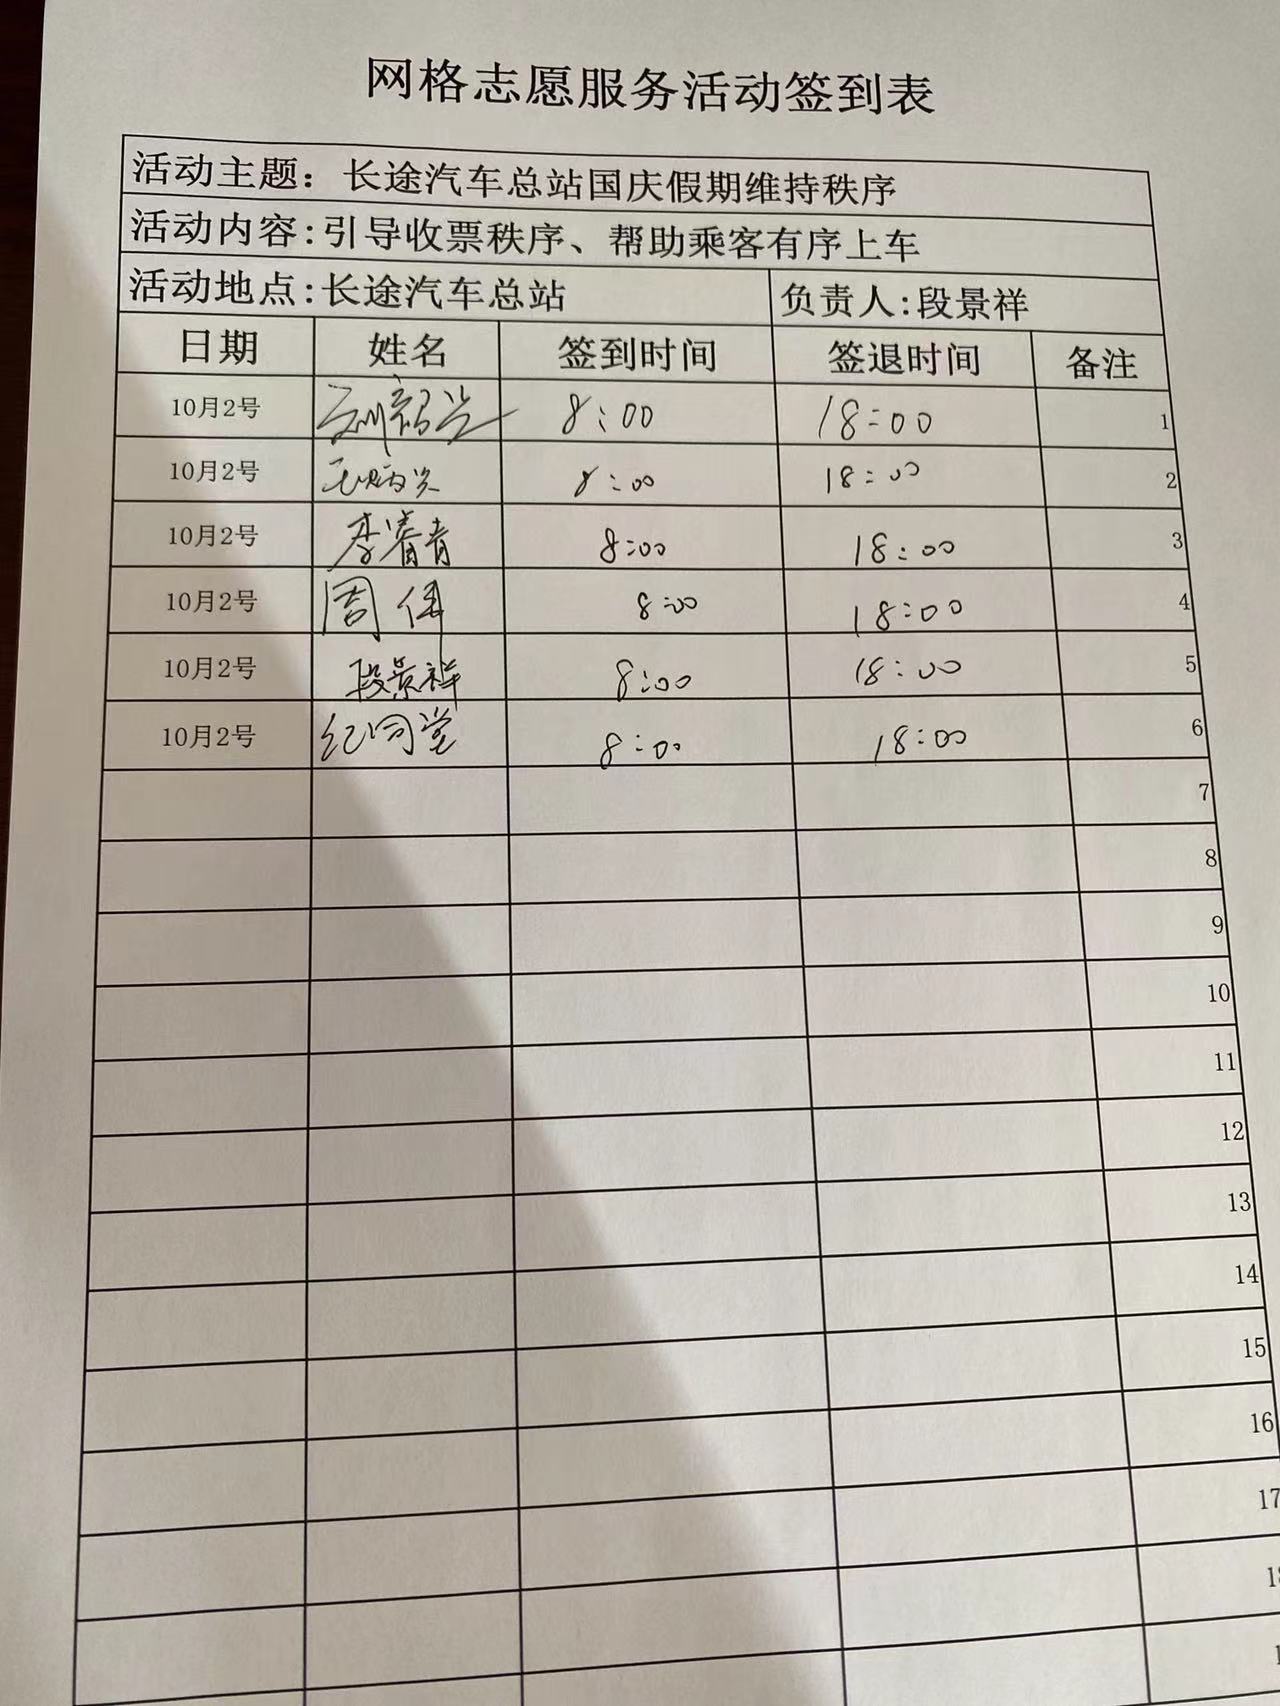 网格志愿服务活动签到表
活动主题：长途汽车总站国庆假期维持秩序
活动内容:引导收票秩序、帮助乘客有序上车
活动地点:长途汽车总站 负责人:段景祥
日期 姓名 签到时间 签退时间 备注
10月2号 8:00 18:00 1
10月2号 8:00 18:00 2
10月2号 李睿青 8:00 18:00 3
10月2号 周伟 8:00 18:00 4
10月2号 段景祥 8:00 18:00 5
10月2号 纪同堂 8:00 18:00 6
7
8
9
10
11
12
13
14
15
16
17